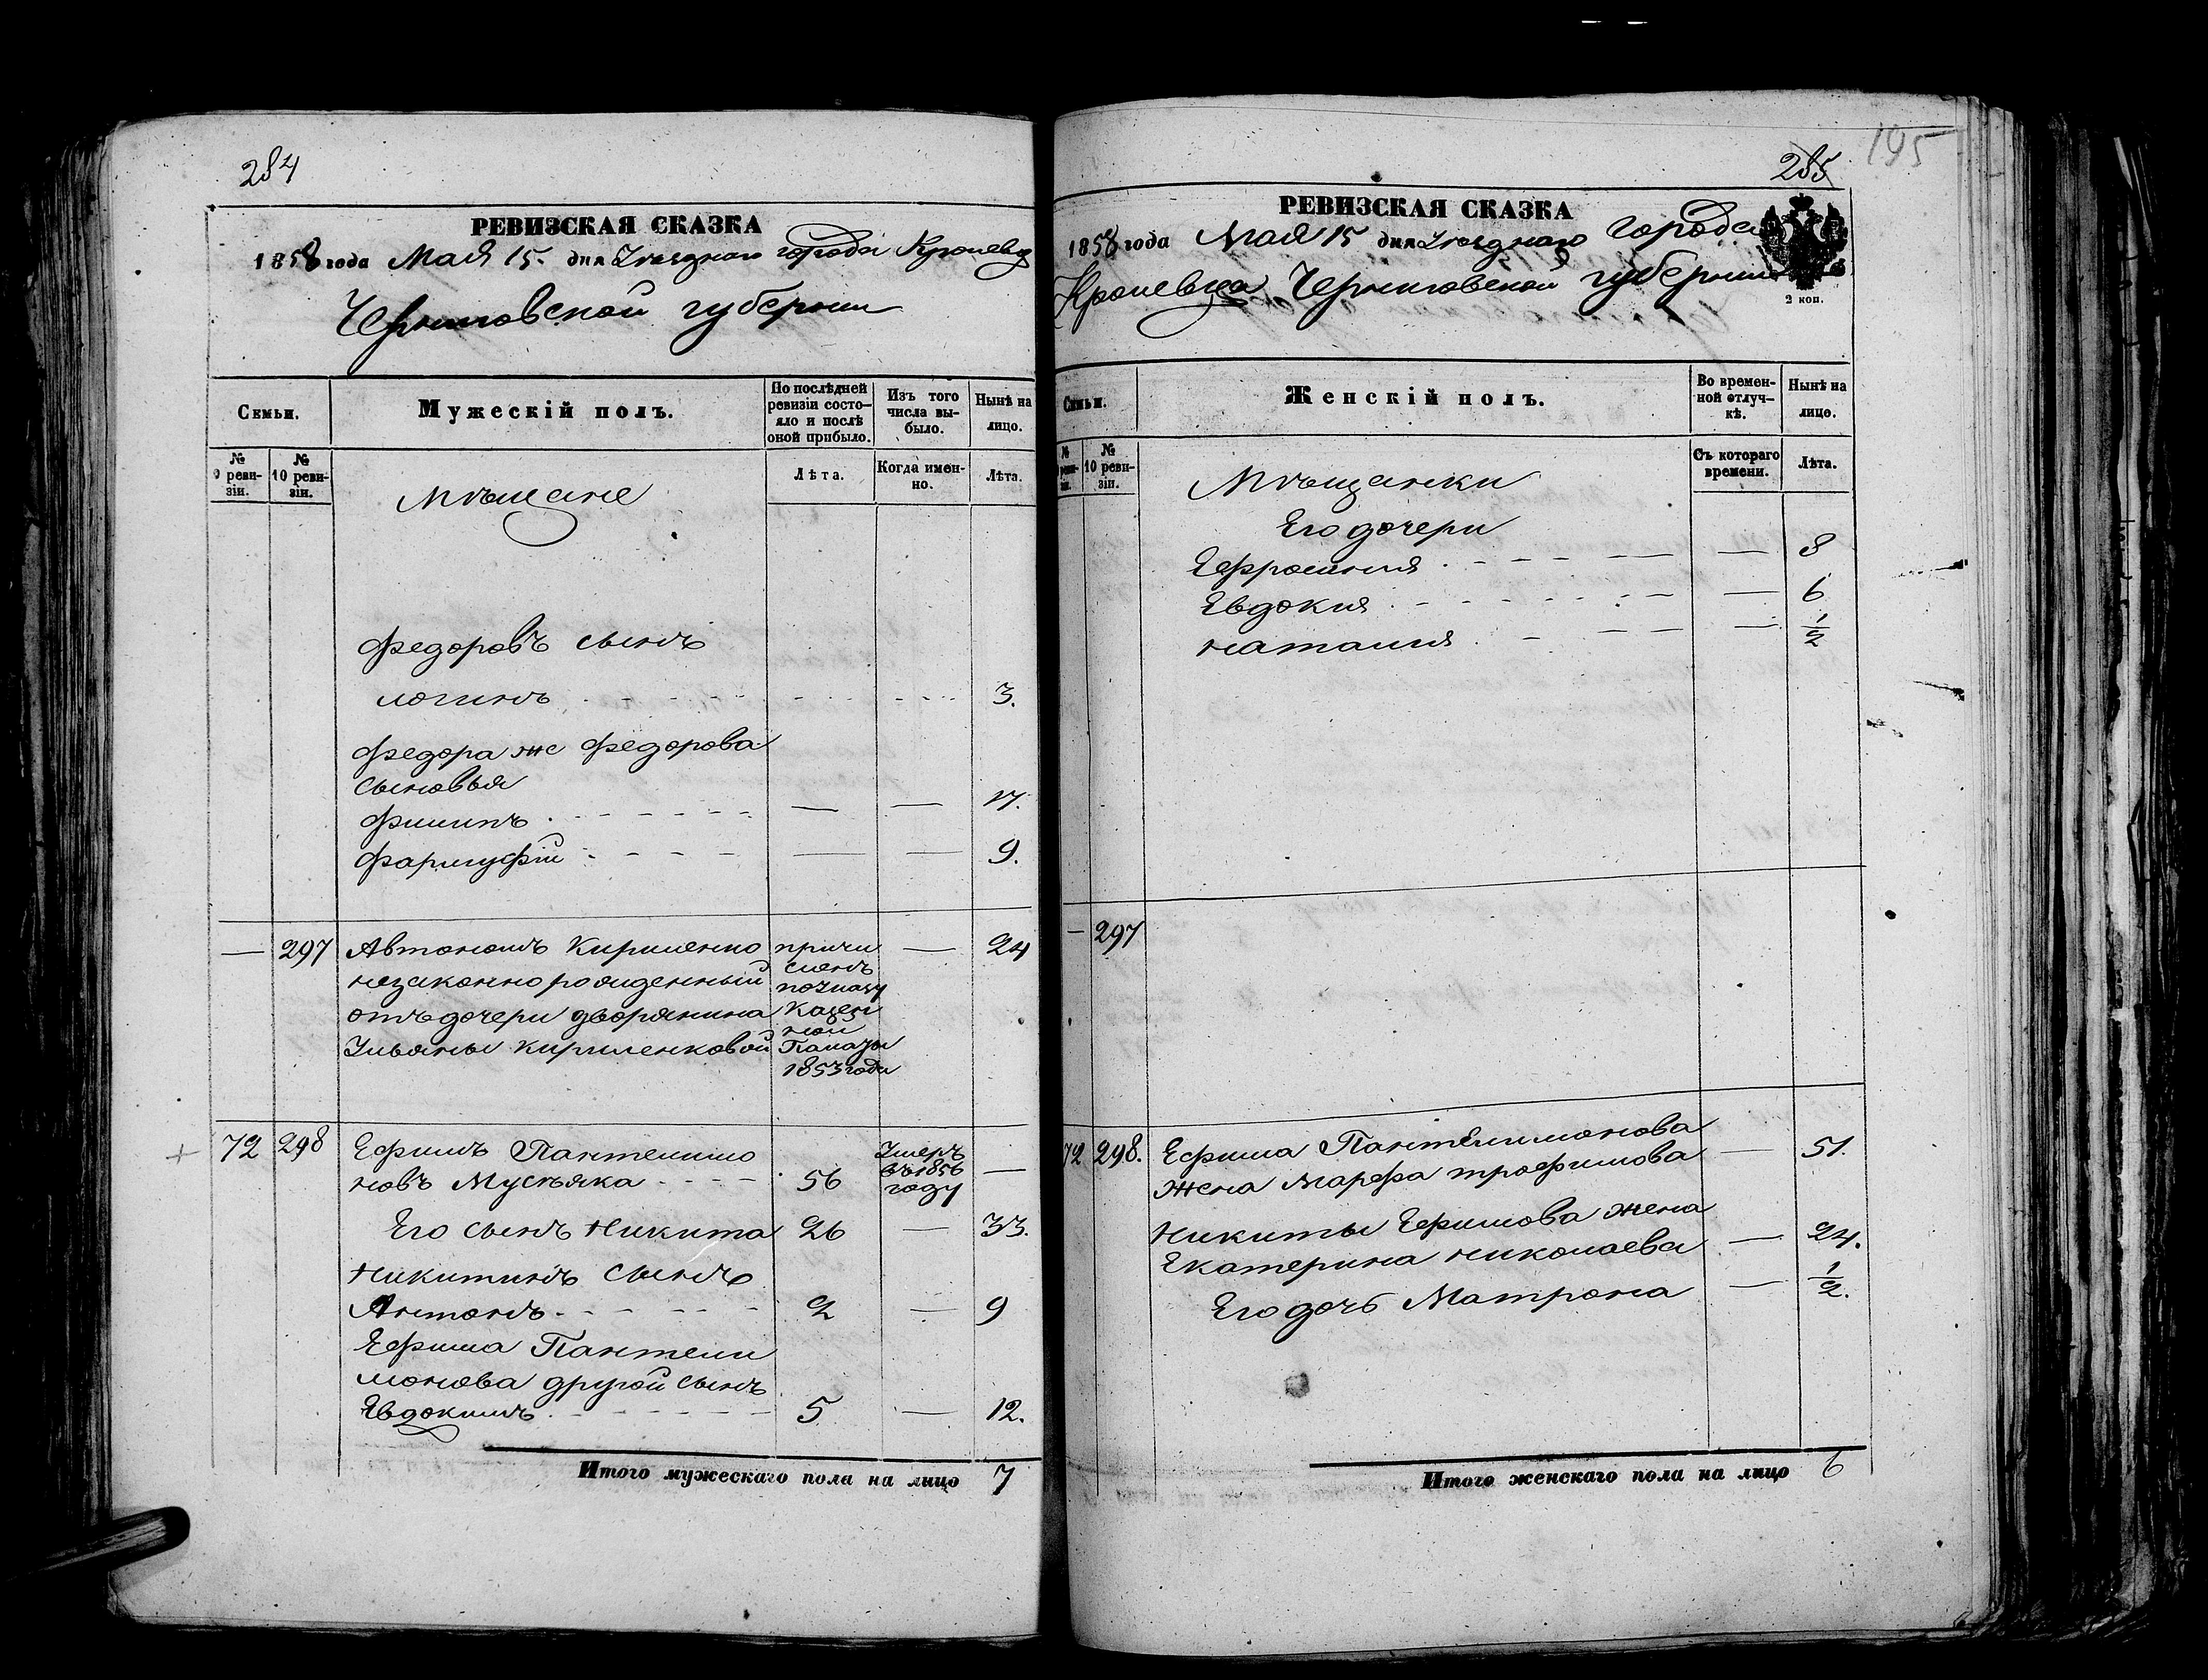 284
РЕВИЗСКАЯ СКАЗКА
1858 года Мая 15. дня Уезднаго города Кролевца
Черниговской губернии
Семьи.
Мужескій полъ.
По послѣдней ревизіи состо-
яло и послѣ
оной прибыло.
Изъ того
числа вы-
было.
Нынѣ на
лицо.
№
9 реви-
зіи.
№
10 реви-
зіи.
Лѣта.
Когда имен-
но.
Лѣта.
Мѣщане
Федоровъ сынъ
Логинъ 3.
Федора же Федорова
сыновья
Филипъ — — 17.
— — 9.
— 297 Автономъ Кириленко — 24
незаконно рожденный
отъ дочери дворянина
Ульяны Кириленковой
причи
сленъ
по указу
Казен
ной
Палаты
1853 года
72 298 Ефимъ Пантелимо
новъ Мусѣяка 56 Умеръ
въ 1856
году —
Его сынъ Никита 26 — 33.
Никитинъ сынъ
Антонъ 2 — 9
Ефима Пантели
монова другой сынъ
Евдокимъ 5 — 12.
Итого мужескаго пола на лицо 7
195
285
РЕВИЗСКАЯ СКАЗКА
1858 года Мая 15 дня Уезднаго Города
Кролевца Черниговской губернии
2 коп.
Семьи.
Женскій полъ.
Во времен-
ной отлуч-
кѣ.
Нынѣ на
лицо.
№
реви-
зіи.
№
10 реви-
зіи.
Съ котораго
времени.
Лѣта.
Мѣщанки
Его дочери
Ефросинія — 8
Евдокия — 6
Наталия — 1/2
— 297
72 298. Ефима Пантелимонова
жена Марфа Трофимова — 51.
Никиты Ефимова жена
Екатерина Николаева — 24.
Его дочь Матрона — 1/2.
Итого женскаго пола на лицо 6